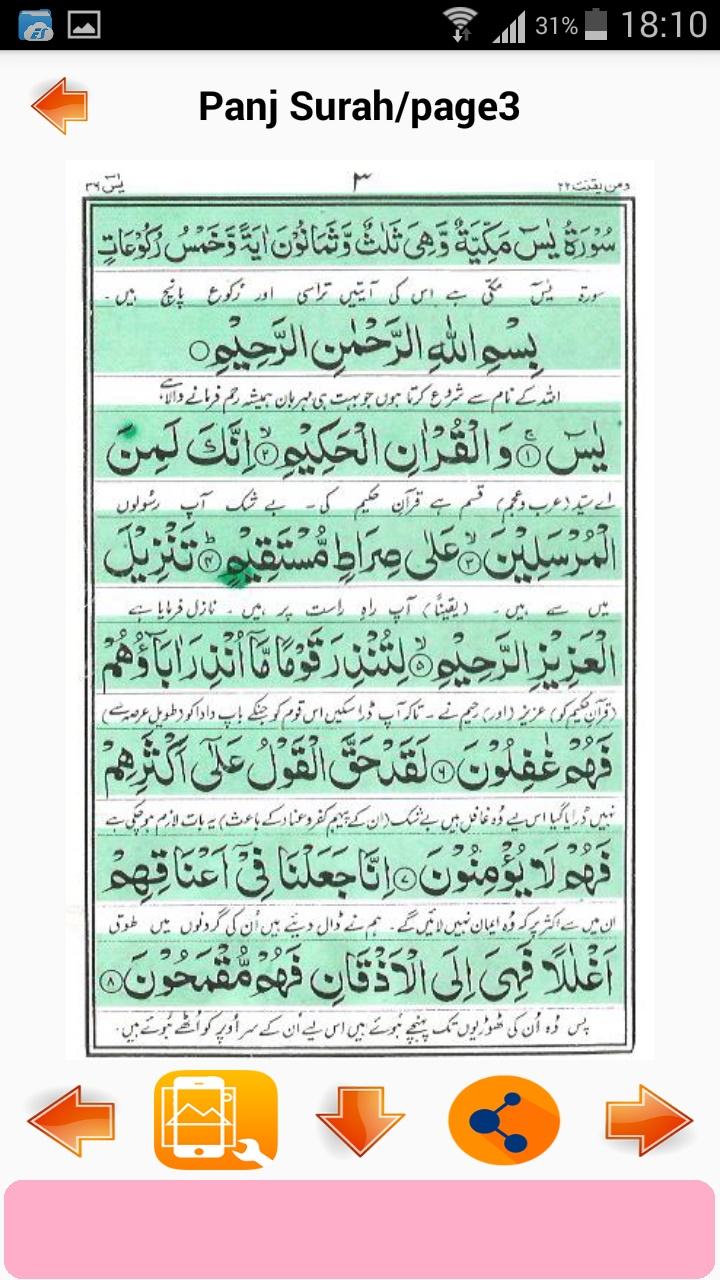 31% 18:10
Panj Surah/page3
یٰسٓ ۳۶ ۳ ومن یقنت ۲۲
سُوْرَةُ یٰسٓ مَكِّیَّةٌ وَّهِیَ ثَلٰثٌ وَّثَمَانُوْنَ اٰیَةً وَّخَمْسُ رُكُوْعَاتٍ
سورۃ یٰسٓ مکّی ہے اس کی آیتیں تراسی اور رکوع پانچ ہیں۔
بِسْمِ اللّٰهِ الرَّحْمٰنِ الرَّحِیْمِ
اللہ کے نام سے شروع کرتا ہوں جو بہت ہی مہربان ہمیشہ رحم فرمانے والا ہے
یٰسٓ ۚ﴿۱﴾ وَ الْقُرْاٰنِ الْحَكِیْمِ ۙ﴿۲﴾ اِنَّكَ لَمِنَ
اے سیّد (عرب و عجم) قسم ہے قرآنِ حکیم کی۔ بے شک آپ رسولوں
الْمُرْسَلِیْنَ ۙ﴿۳﴾ عَلٰی صِرَاطٍ مُّسْتَقِیْمٍ ؕ﴿۴﴾ تَنْزِیْلَ
میں سے ہیں۔ (یقیناً) آپ راہِ راست پر ہیں۔ نازل فرمایا ہے
الْعَزِیْزِ الرَّحِیْمِ ۙ﴿۵﴾ لِتُنْذِرَ قَوْمًا مَّاۤ اُنْذِرَ اٰبَآؤُهُمْ
(قرآنِ حکیم کو) عزیز (اور) رحیم نے۔ تاکہ آپ ڈرا سکیں اس قوم کو جنکے باپ دادا کو (طویل عرصہ سے)
فَهُمْ غٰفِلُوْنَ ﴿۶﴾ لَقَدْ حَقَّ الْقَوْلُ عَلٰۤی اَكْثَرِهِمْ
نہیں ڈرایا گیا اس لیے وُہ غافل ہیں بے شک (ان کے پیہم کفر و عناد کے باعث) یہ بات لازم ہو چکی ہے
فَهُمْ لَا یُؤْمِنُوْنَ ﴿۷﴾ اِنَّا جَعَلْنَا فِیْۤ اَعْنَاقِهِمْ
ان میں سے اکثر پر کہ وُہ ایمان نہیں لائیں گے۔ ہم نے ڈال دیئے ہیں اُن کی گردنوں میں طوق
اَغْلٰلًا فَهِیَ اِلَی الْاَذْقَانِ فَهُمْ مُّقْمَحُوْنَ ﴿۸﴾
پس وُہ اُن کی ٹھوڑیوں تک پہنچے ہُوئے ہیں اس لیے اُن کے سر اُوپر کو اُٹھے ہُوئے ہیں۔